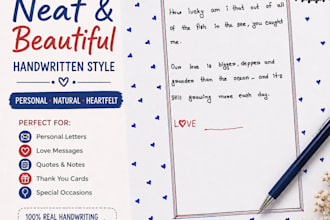 Neat &
Beautiful
HANDWRITTEN STYLE
PERSONAL • NATURAL • HEARTFELT
PERFECT FOR:
Personal Letters
Love Messages
Quotes & Notes
Thank You Cards
Special Occasions
100% REAL HANDWRITING
How lucky am i that out of all
of the fish in the sea, you caught
me.
Our love is bigger, deeper and
grander than the ocean - and it's
still growing more each day.
LOVE